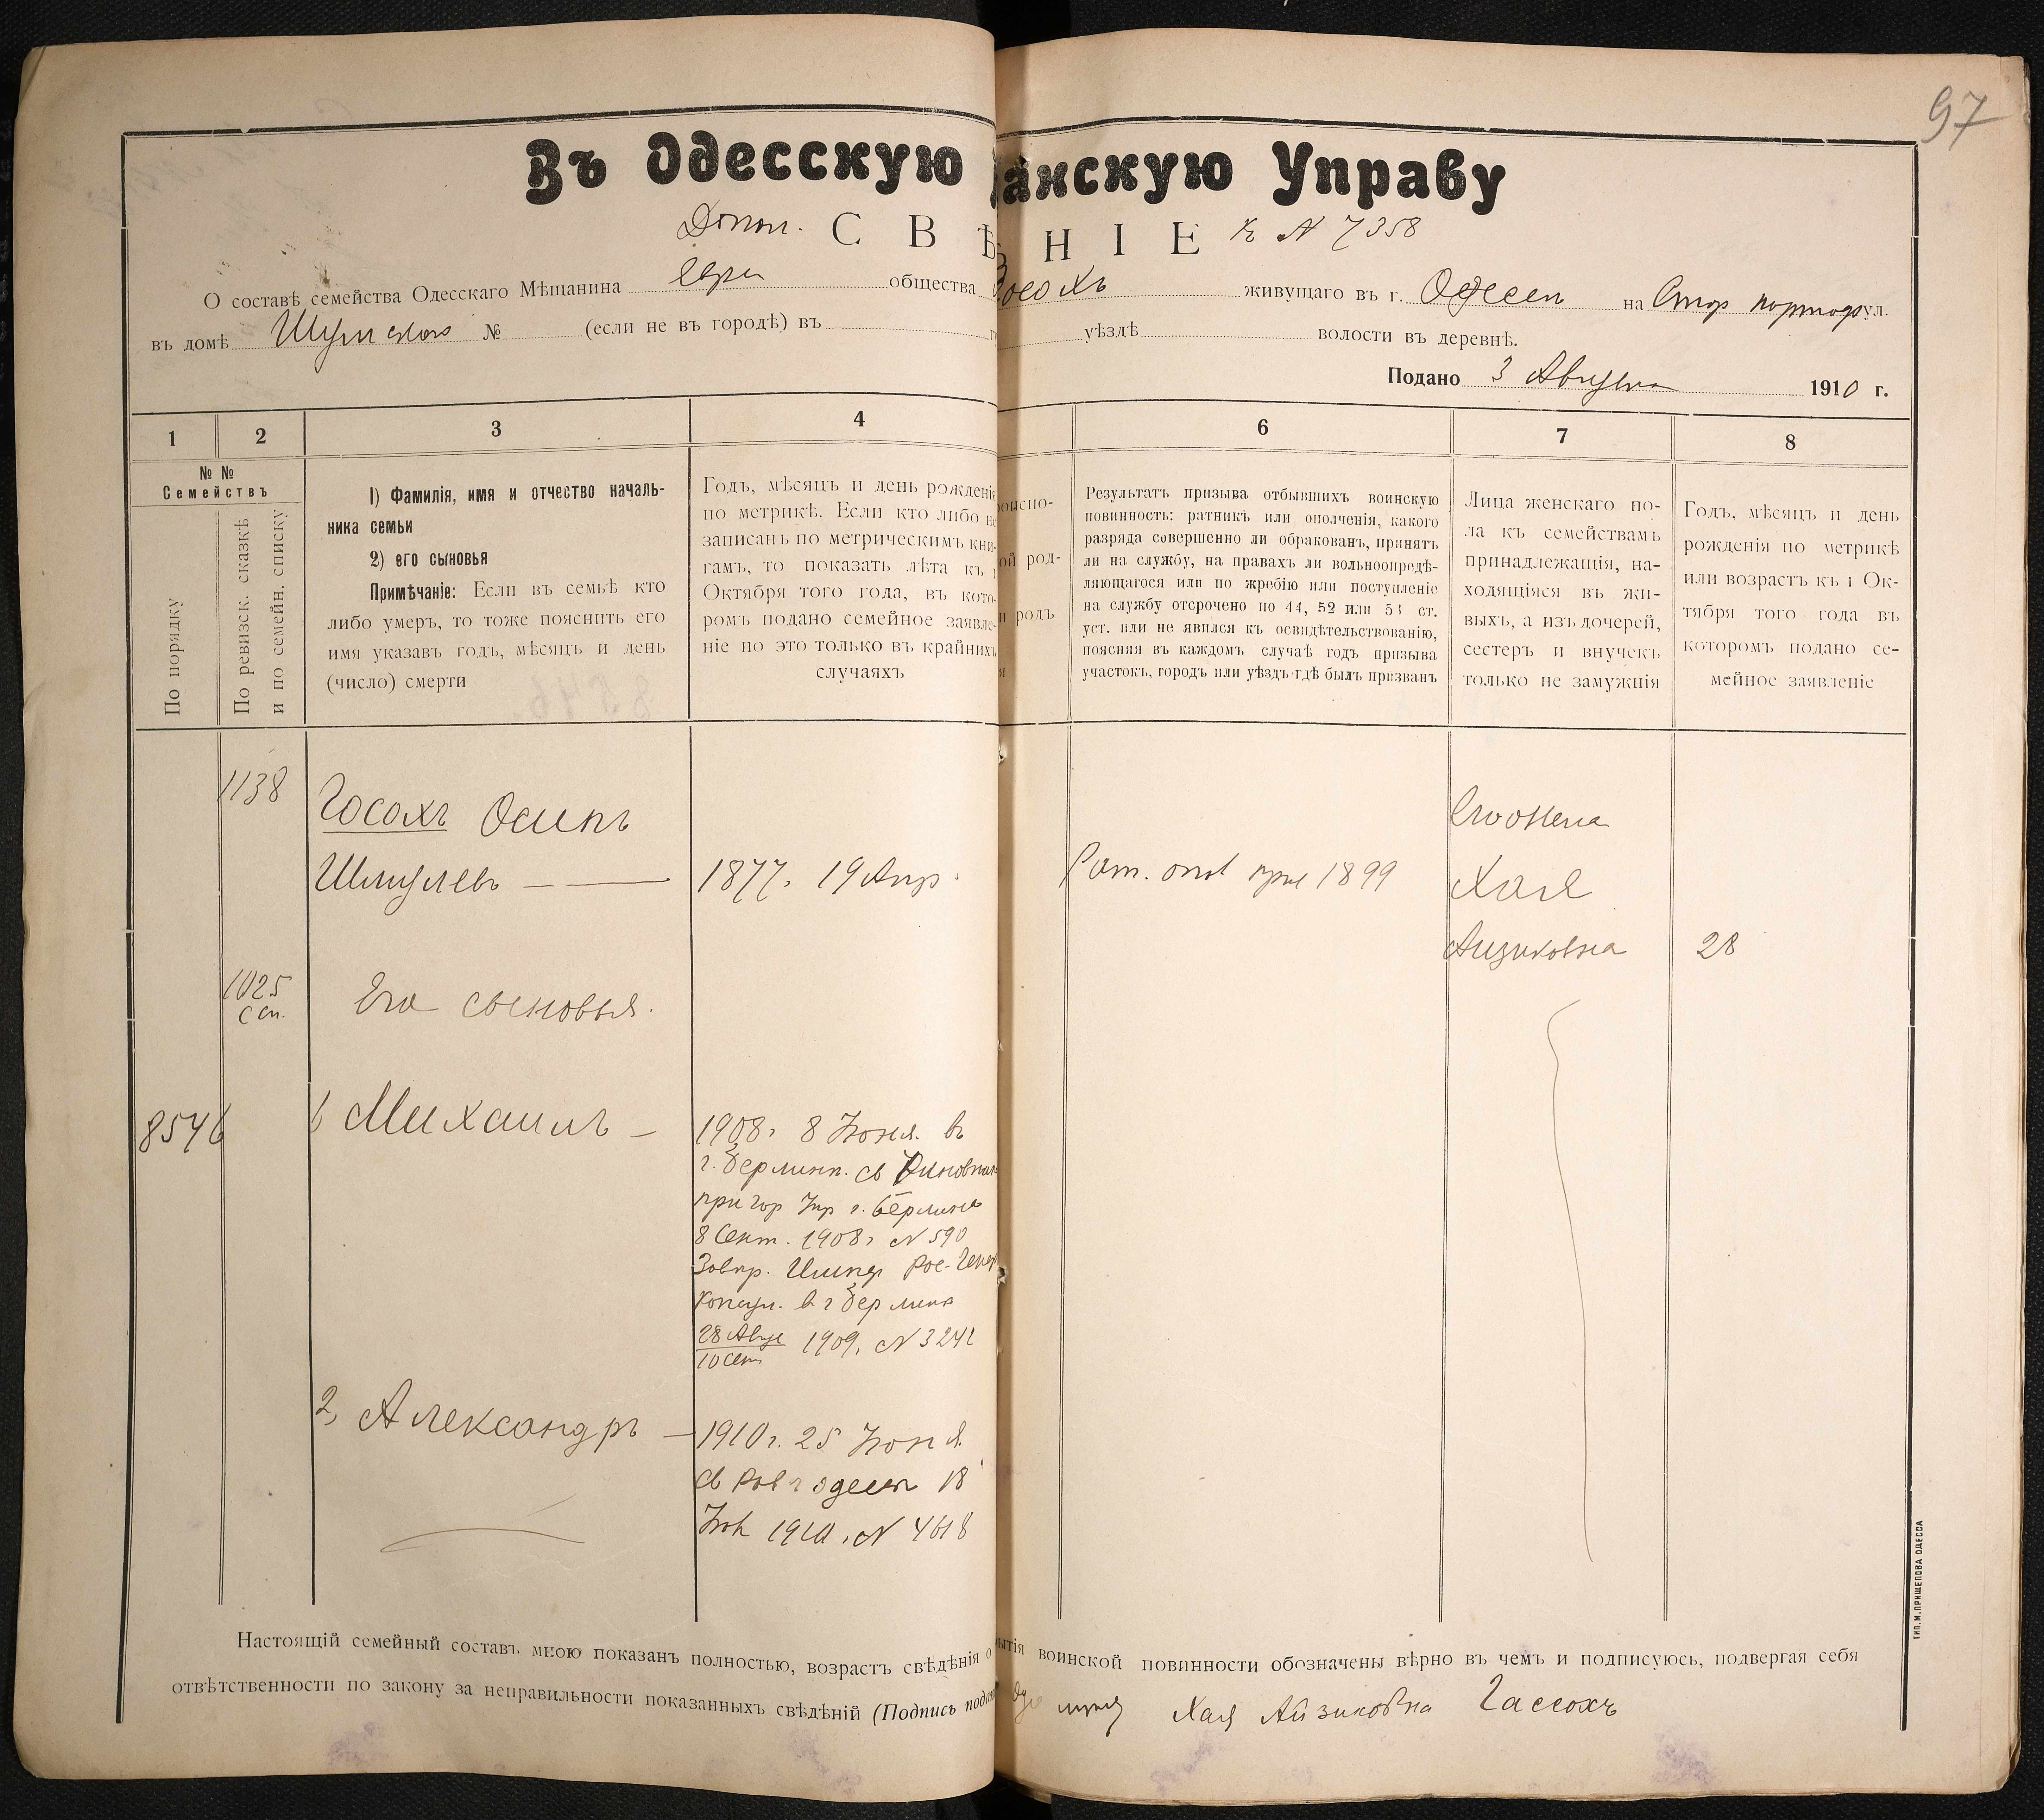 97
Въ Одесскую анскую Управу
Допол. СВѢ НІЕ к № 7358
О составѣ семейства Одесскаго Мѣщанина Евр общества живущаго въ г. Одессѣ на ул.
въ домѣ № (если не въ городѣ) въ уѣздѣ волости въ деревнѣ.
Подано 3 Августа 1910 г.
1 2 3 4 6 7 8
№ №
Семействъ
По порядку
По ревизск. сказкѣ
и по семейн. списку
1) Фамилія, имя и отчество началь-
ника семьи
2) его сыновья
Примѣчаніе: Если въ семьѣ кто
либо умеръ, то тоже пояснить его
имя указавъ годъ, мѣсяцъ и день
(число) смерти
Годъ, мѣсяцъ и день рожденія
по метрикѣ. Если кто либо не
записанъ по метрическимъ кни-
гамъ, то показать лѣта къ 1
Октября того года, въ кото-
ромъ подано семейное заявле-
ніе но это только въ крайнихъ
случаяхъ
оиспо-
ой род-
и родъ
я
Результатъ призыва отбывшихъ воинскую
повинность: ратникъ или ополченія, какого
разряда совершенно ли обракованъ, принятъ
ли на службу, на правахъ ли вольноопредѣ-
ляющагося или по жребію или поступленіе
на службу отсрочено по 44, 52 или 53 ст.
уст. или не явился къ освидѣтельствованію,
поясняя въ каждомъ случаѣ годъ призыва
участокъ, городъ или уѣздъ гдѣ былъ призванъ
Лица женскаго по-
ла къ семействамъ
принадлежащія, на-
ходящіяся въ жи-
выхъ, а изъ дочерей,
сестеръ и внучекъ
только не замужнія
Годъ, мѣсяцъ и день
рожденія по метрикѣ
или возрастъ къ 1 Ок-
тября того года въ
которомъ подано се-
мейное заявленіе
1138 Госохъ Осипъ Его жена
Шмулевъ 1877. 19 Апр. Рат. опол приз 1899 Хая
Айзиковна 28
1025
с сп. Его сыновья.
8546 1 Михаилъ 1908 г 8 Іюня. въ
г. Берлинѣ. св
при гор Упр г. Берлина
8 Сент. 1908 г № 590
Завѣр. Импер Рос. Генер
Консул. в г Берлинѣ
28 Авгус
10 Сент 1909. № 3242
2, Александръ 1910 г. 25 Іюня
св Рав г Одессы 18
Іюл 1910, № 4618
Настоящій семейный составъ мною показанъ полностью, возрастъ свѣдѣнія о бытія воинской повинности обозначены вѣрно въ чемъ и подписуюсь, подвергая себя
отвѣтственности по закону за неправильности показанныхъ свѣдѣній (Подпись Хая Айзиковна Гассохъ
ТИП. М. ПРИЩЕПОВА ОДЕССА